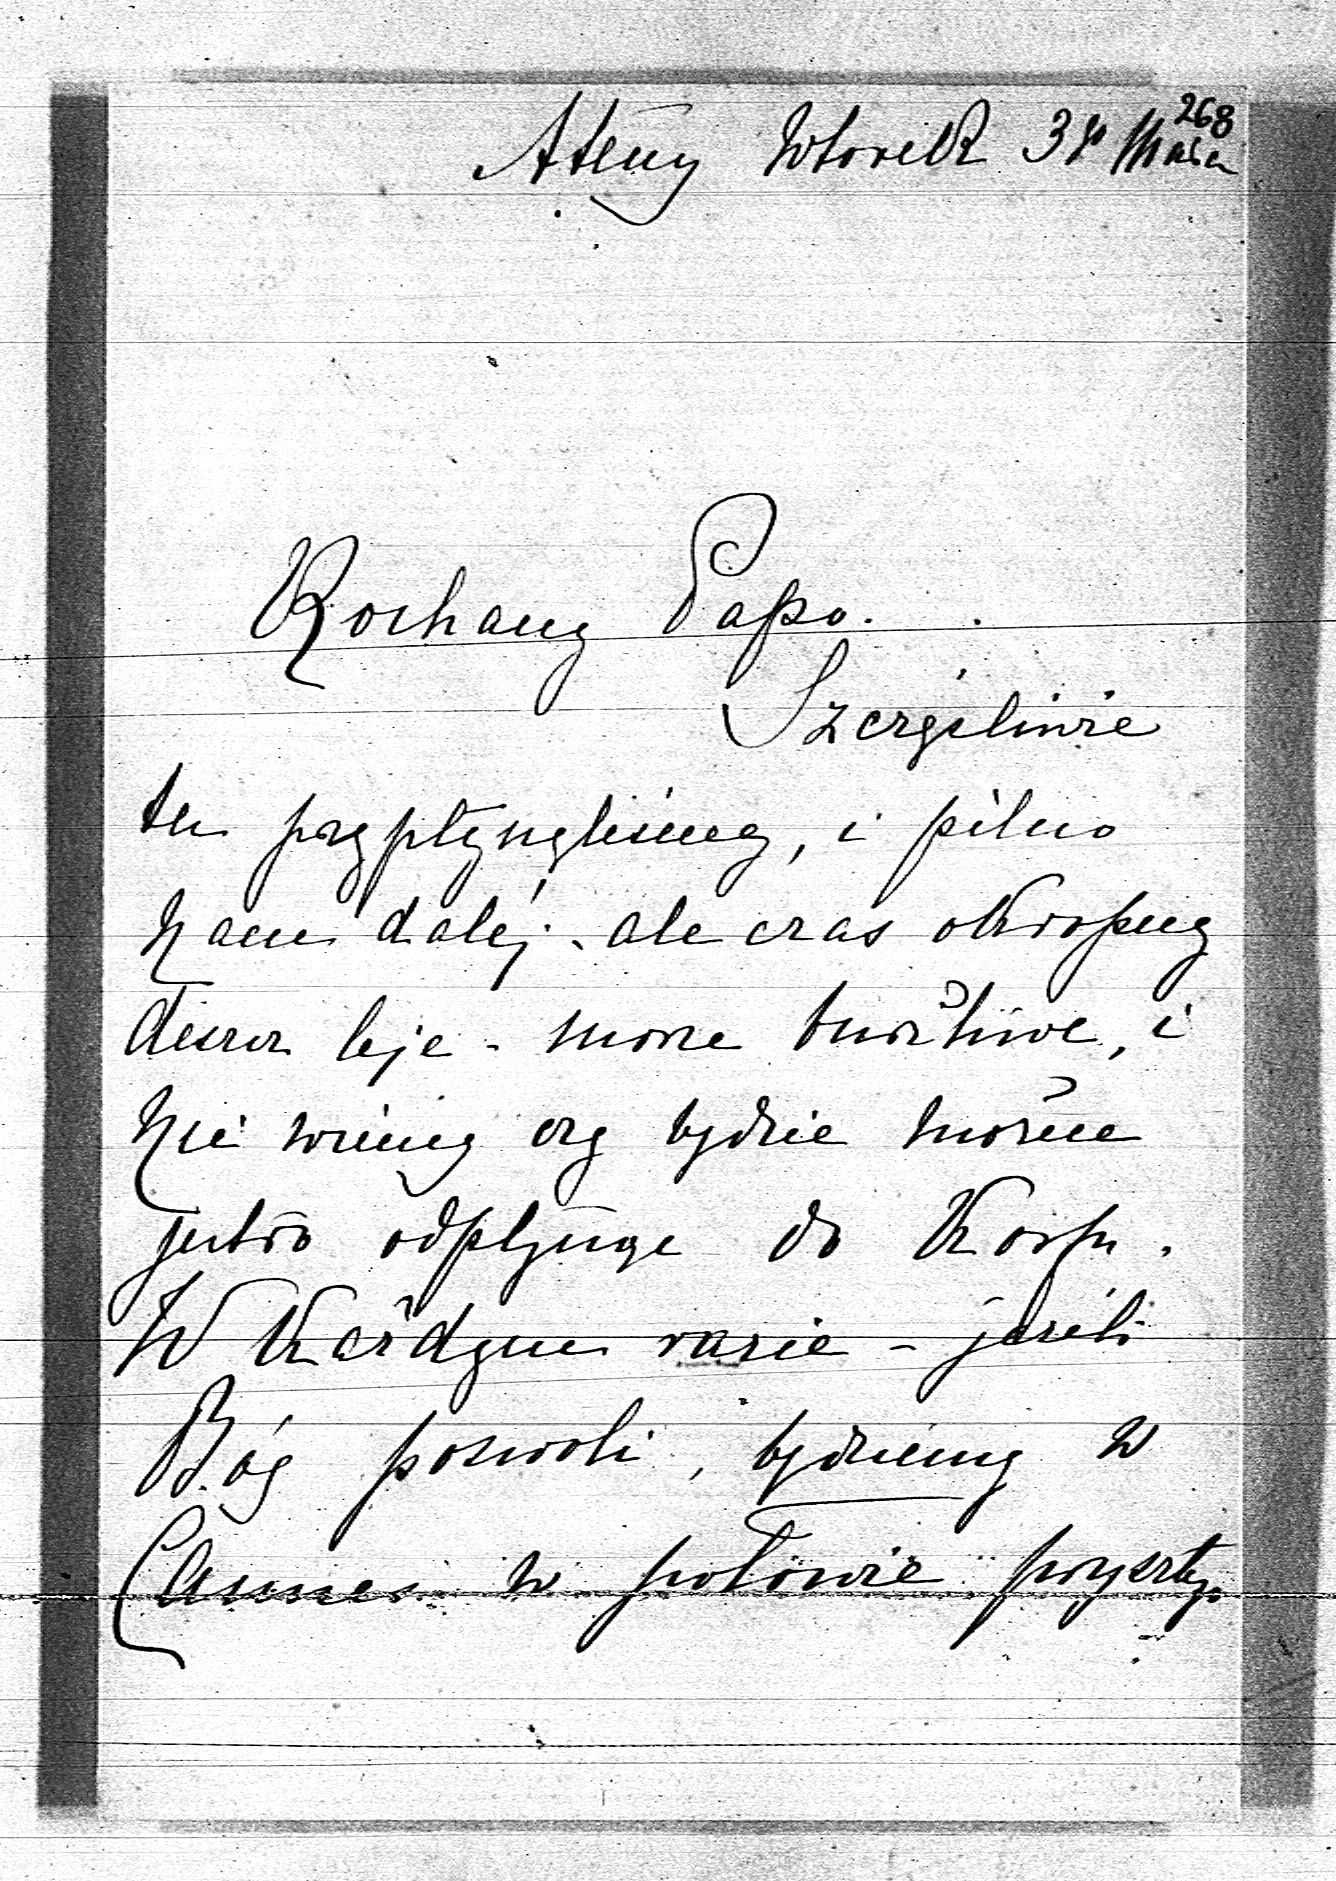 268
Ateny Wtorek 3go Maia
Kochany Papo.
Szczęśliwie
tu przypłynęliśmy, i pilno
nam daléj - ale czas okropny
deszcz leje - morze burzliwe, i
nie wiemy czy będzie można
jutro odpłynąć do Korfu.
W każdym razie - jeżeli
Bóg pozwoli, będziemy w
Cannes w połowie przyszłego